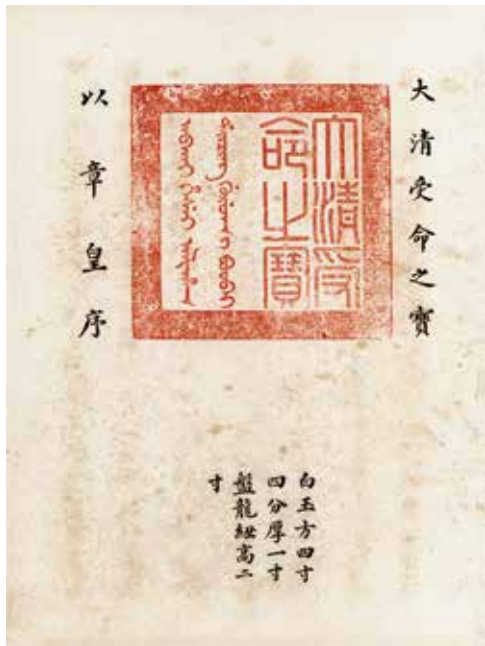 大清受命之寶
大清受
命之寶
以章皇序
白玉方四寸
四分厚一寸
盤龍紐高二
寸